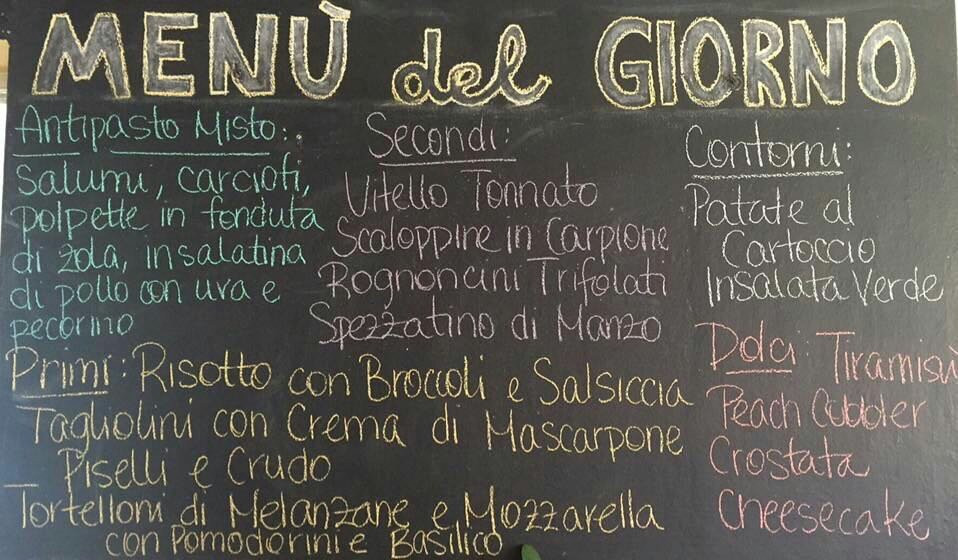 MENÙ del GIORNO
Antipasto Misto:
Salumi, carciofi,
polpette in fonduta
di zola, insalatina
di pollo con uva e
pecorino
Primi: Risotto con Broccoli e Salsiccia
Tagliolini con Crema di Mascarpone
Piselli e Crudo
Tortelloni di Melanzane e Mozzarella
con Pomodorini e Basilico
Secondi:
Vitello Tonnato
Scaloppine in Carpione
Rognoncini Trifolati
Spezzatino di Manzo
Contorni:
Patate al
Cartoccio
Insalata Verde
Dolci: Tiramisù
Peach Cobbler
Crostata
Cheesecake